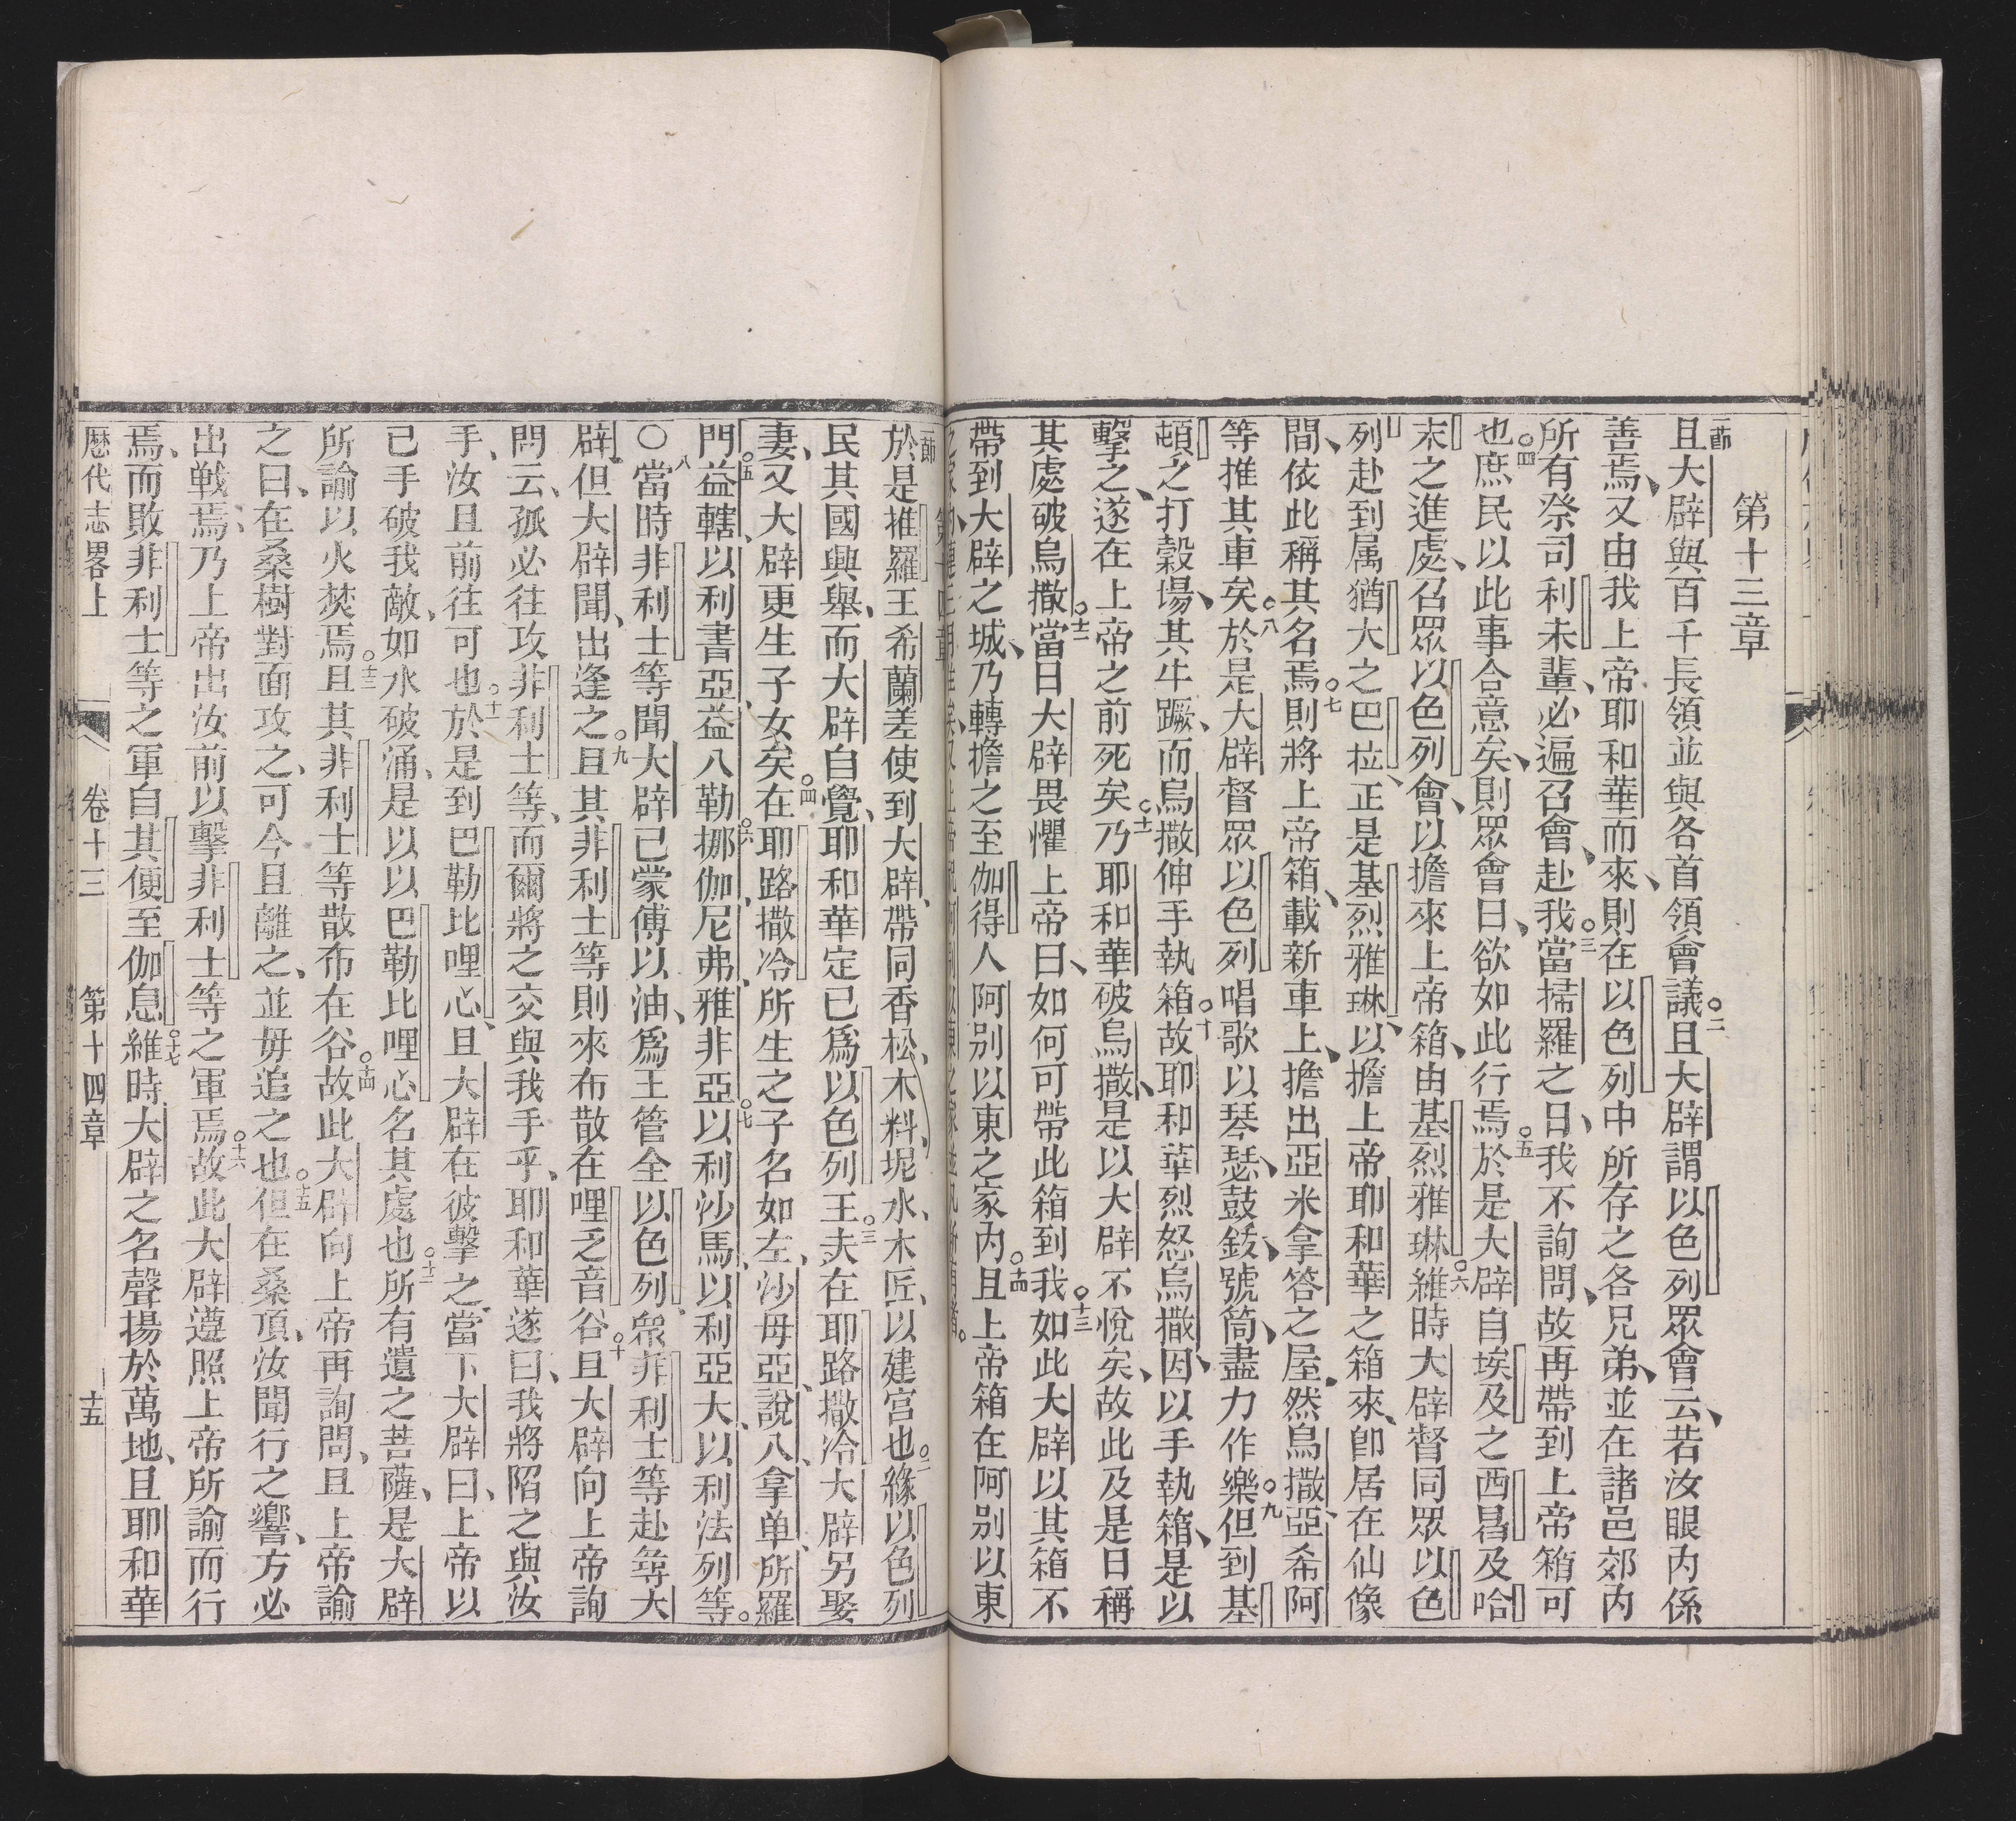 第十三章
一節且大辟與百千長領並與各首領會議○二且大辟謂以色列眾會云、若汝眼內係
善焉、又由我上帝耶和華而來、則在以色列中所存之各兄弟、並在諸邑郊內
所有祭司利未輩、必遍召會、赴我○三當掃羅之日、我不詢問、故再帶到上帝箱可
也○四庶民以此事合意矣、則眾會曰、欲如此行焉○五於是大辟自埃及之西曷及哈
末之進處、召眾以色列會、以擔來上帝箱、由基烈雅琳○六維時大辟督同眾以色
列赴到属猶大之巴拉、正是基烈雅琳、以擔上帝耶和華之箱來、即居在仙像
間、依此稱其名焉○七則將上帝箱、載新車上、擔出亞米拿答之屋、然烏撒亞希阿
等推其車矣○八於是大辟督眾以色列唱歌以琴瑟、鼓鈸、號筒、盡力作樂○九但到基
頓之打穀場、其牛蹶、而烏撒伸手執箱○十故耶和華烈怒烏撒、因以手執箱、是以
擊之、遂在上帝之前死矣○十一乃耶和華破烏撒、是以大辟不悅矣、故此及是日稱
其處破烏撒○十二當日大辟畏懼上帝曰、如何可帶此箱到我○十三如此大辟以其箱不
帶到大辟之城、乃轉擔之至伽得人阿別以東之家內○十四且上帝箱在阿別以東
第十四章
一節於是推羅王希蘭差使到大辟、帶同香松、木料、坭水、木匠、以建宮也○二緣以色列
民其國興舉、而大辟自覺、耶和華定已爲以色列王○三夫在耶路撒冷大辟另娶
妻、又大辟更生子女矣○四在耶路撒冷所生之子名如左、沙毋亞、說八、拿单、所羅
門○五益轄、以利書亞、益八勒○六挪伽、尼弗、雅非亞○七以利沙馬、以利亞大、以利法列等。
○八當時非利士等聞大辟已蒙傅以油、爲王管全以色列、眾非利士等赴等大
辟、但大辟聞、出逢之○九且其非利士等則來布散在哩乏音谷○十且大辟向上帝詢
問云、孤必往攻非利士等、而爾將之交與我手乎、耶和華遂曰、我將陷之與汝
手、汝且前往可也○十一於是到巴勒比哩心、且大辟在彼擊之、當下大辟曰、上帝以
已手破我敵、如水破涌、是以以巴勒比哩心名其處也○十二所有遺之菩薩、是大辟
所諭以火焚焉○十三且其非利士等散布在谷○十四故此大辟向上帝再詢問、且上帝諭
之曰、在桑樹對面攻之、可今且離之、並毋追之也○十五但在桑頂、汝聞行之響、方必
出戦焉、乃上帝出汝前以擊非利士等之軍焉○十六故此大辟遵照上帝所諭而行
焉、而敗非利士等之軍自其便至伽息○十七維時大辟之名聲揚於萬地、且耶和華
歷代志畧上 卷十三 第十四章 十五